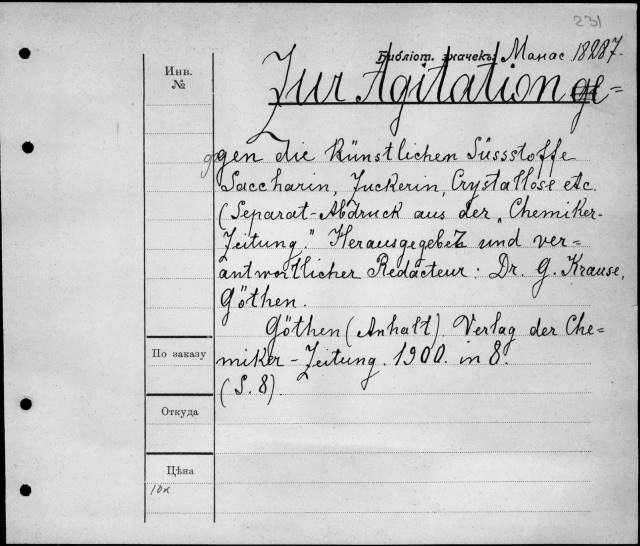 231
Библіот. значекъ. Манас 18287.
Инв.
№
Zur Agitation ge=
gen die künstlichen Süssstoffe
Saccharin, Zuckerin, Crystallose etc.
(Separat-Abdruck aus der „Chemiker-
Zeitung." Herausgegeben und ver=
antwortlicher Redacteur: Dr. G. Krause,
Göthen.
Göthen (Anhalt). Verlag der Che=
miker-Zeitung. 1900. in 8.
(S. 8).
По заказу
Откуда
Цѣна
10к